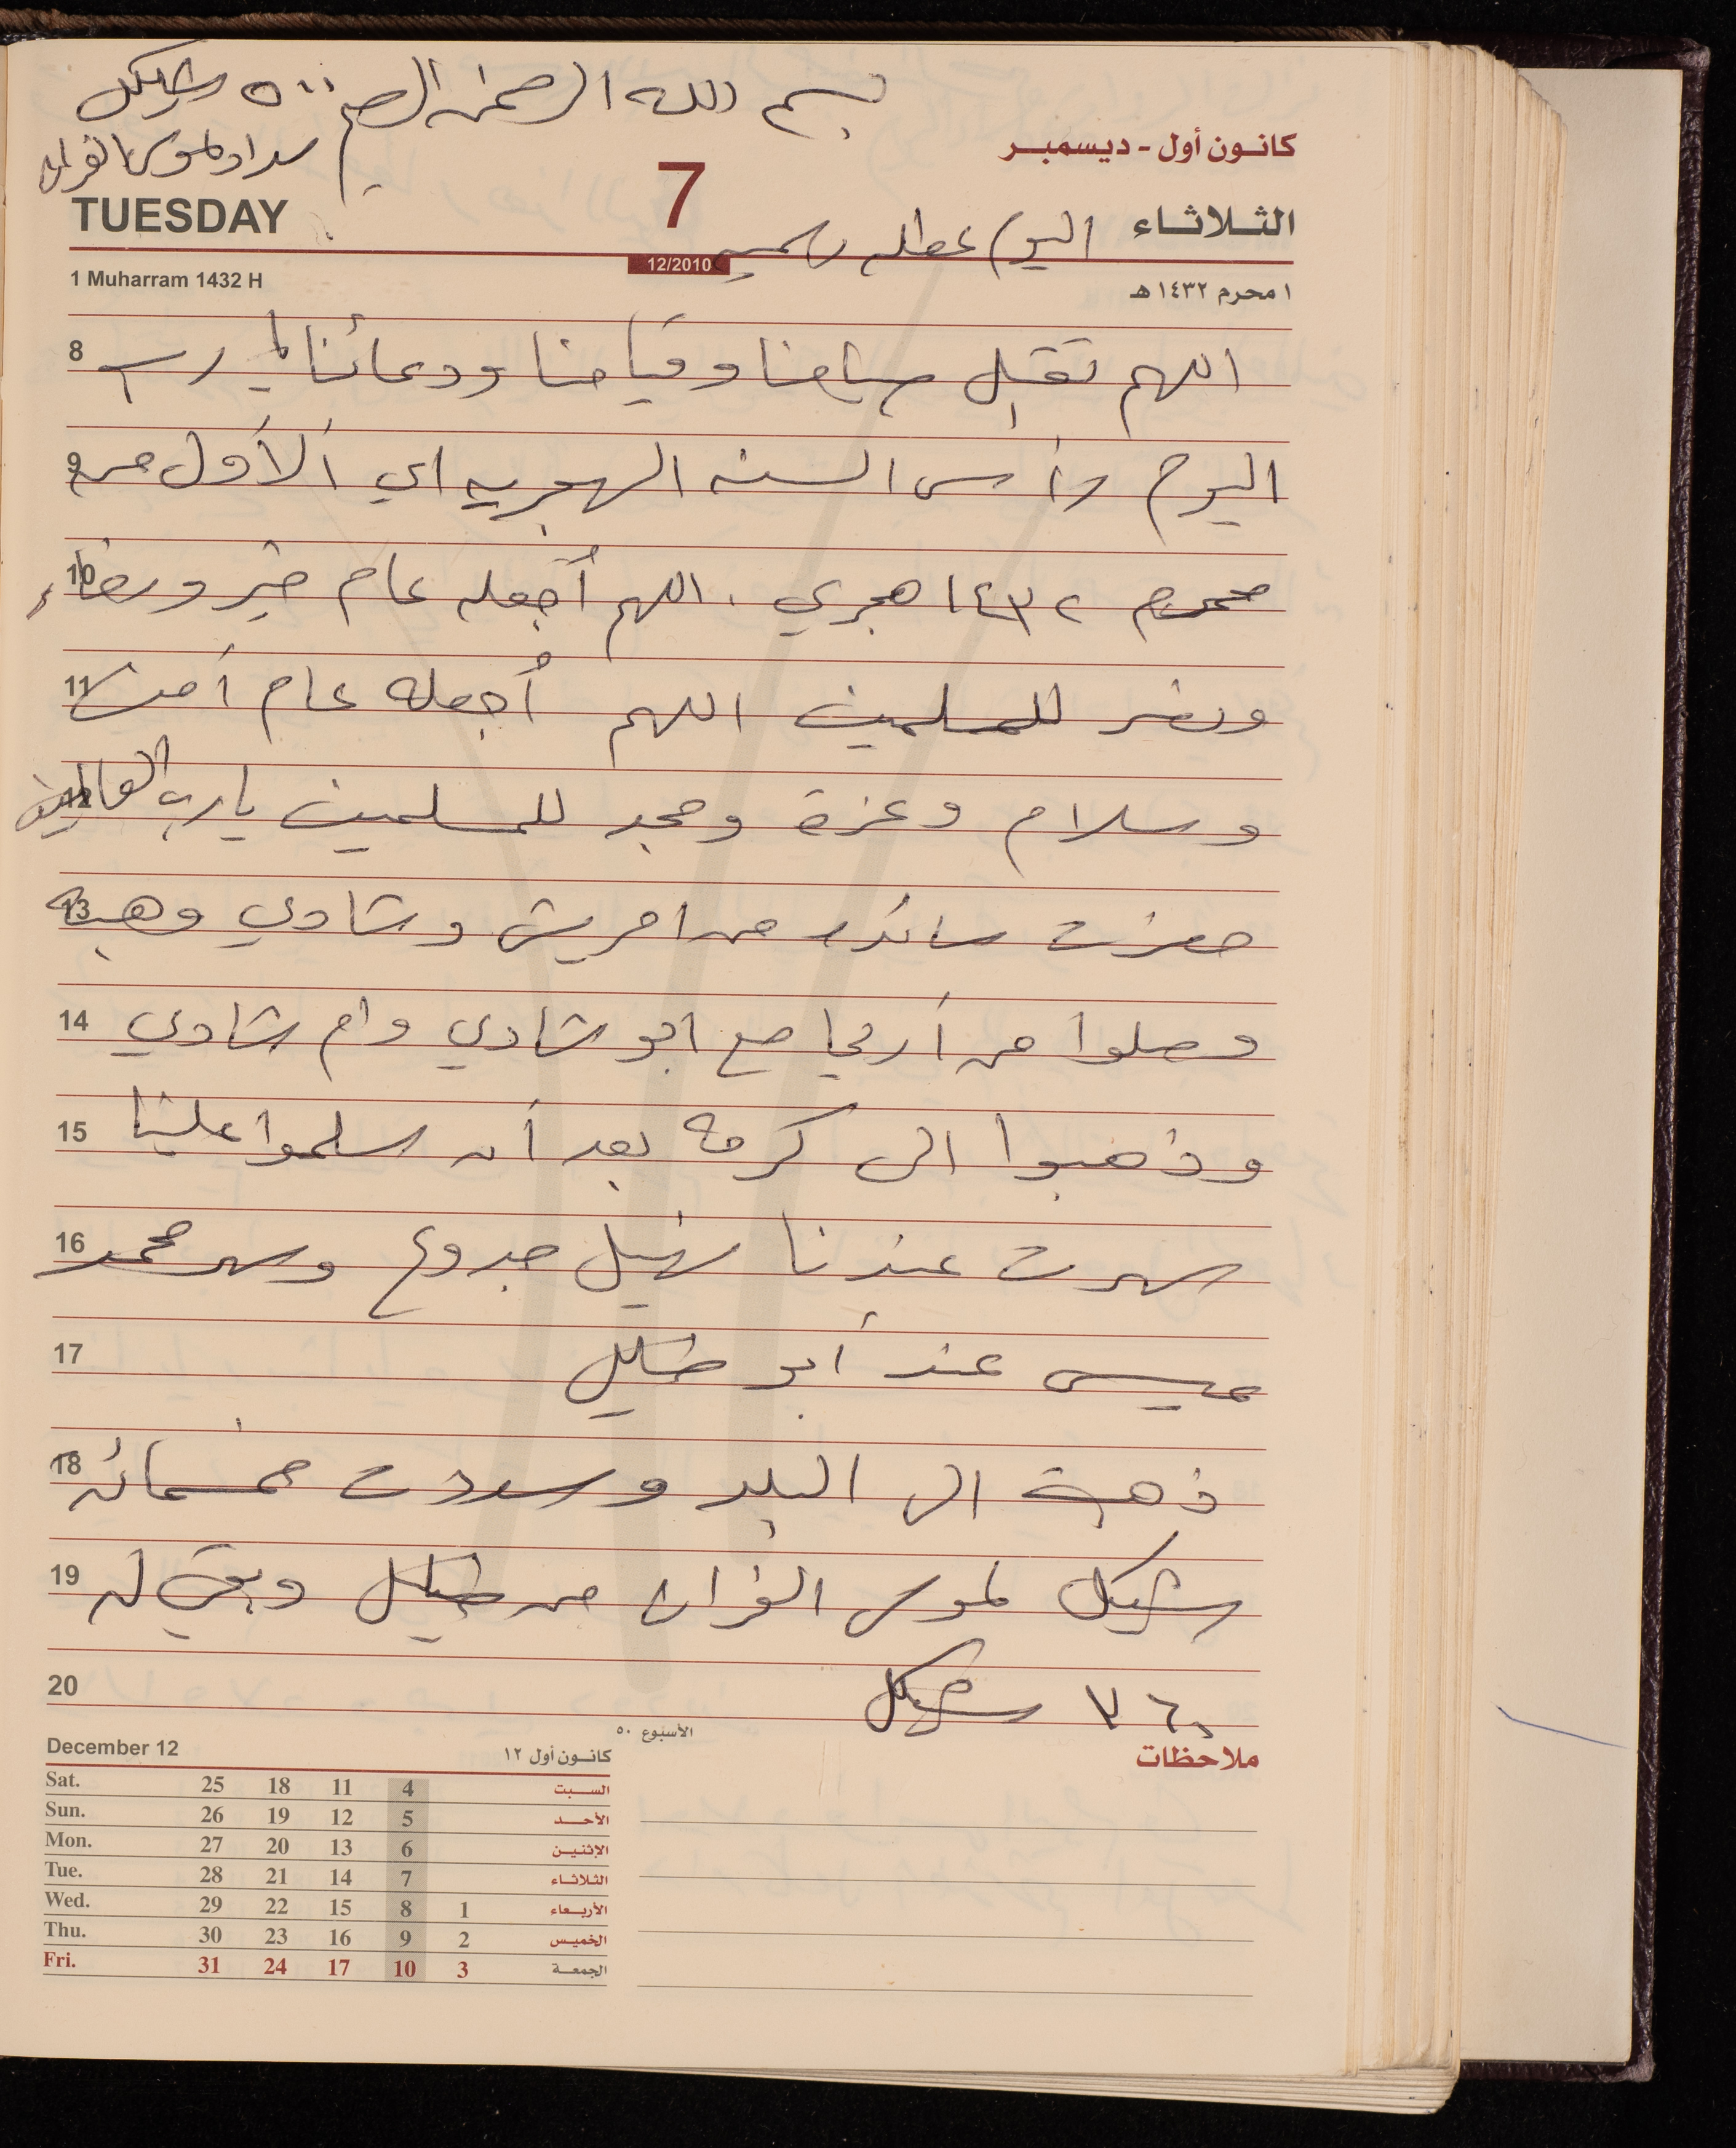 بسم الله الرحمن الرحيم ٥٠٠ شيكل
سداد لموسى الفران
كانون أول - ديسمبر
TUESDAY 7 الثلاثاء
اليوم عطله رسميه
1 Muharram 1432 H 12/2010 ١ محرم ١٤٣٢ هـ
8 اللهم تقبل صيامنا وقيامنا ودعائنا يا رب
9 اليوم رأس السنه الهجريه اي الأول من
10 محرم ١٤٣٢ هجري . اللهم أجعله عام خير ورخاء
11 ونصر للمسلمين اللهم أجعله عام أمن
12 وسلام وعزة ومجد للمسلمين يارب العالمين
13 حضرت سائده من امريش وشادي وهبه
14 وصلوا من أريحا مع ابو شادي وام شادي
15 وذهبوا الى كرمه بعد أن سلموا علينا
16 سهرت عندنا نهيل جدوع وسهر محمد
17 عيسى عند أبو خليل
18 ذهبة الى البلد وسددت خمسمائه
19 شيكل لموسى الفران من خليل وبقي له
20 ٧٦٠ شيكل
الأسبوع ٥٠
ملاحظات
December 12 كانون أول ١٢
Sat. 25 18 11 4 السبت
Sun. 26 19 12 5 الأحد
Mon. 27 20 13 6 الإثنين
Tue. 28 21 14 7 الثلاثاء
Wed. 29 22 15 8 1 الأربعاء
Thu. 30 23 16 9 2 الخميس
Fri. 31 24 17 10 3 الجمعة